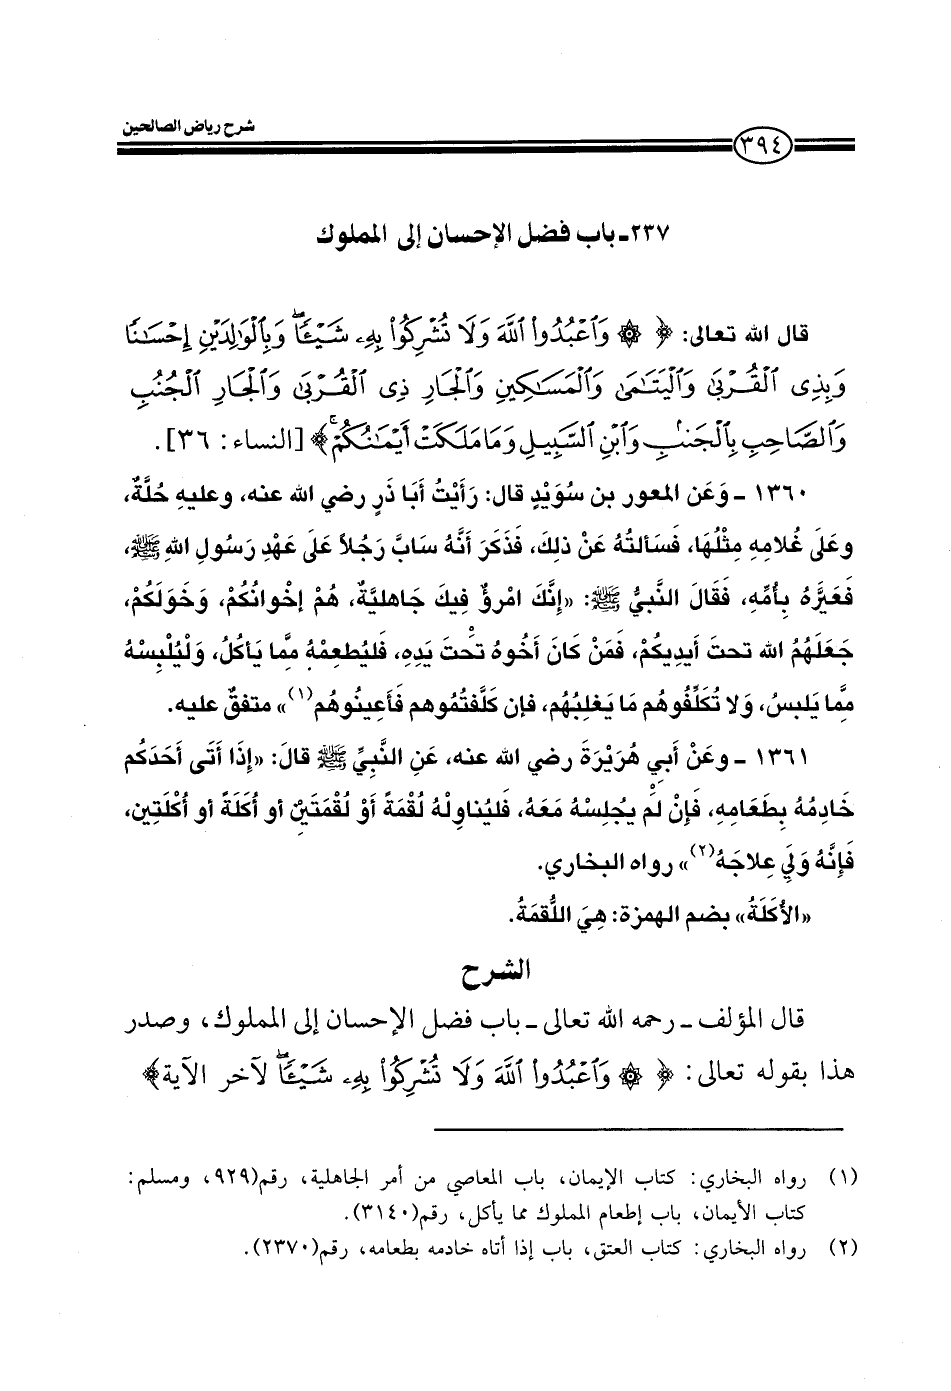 شرح رياض الصالحين
٣٩٤
٢٣٧ـ باب فضل الإحسان إلى المملوك
قال الله تعالى: ﴿ ۞ وَٱعْبُدُوا۟ ٱللَّهَ وَلَا تُشْرِكُوا۟ بِهِۦ شَيْـًٔا ۖ وَبِٱلْوَٰلِدَيْنِ إِحْسَـٰنًا
وَبِذِى ٱلْقُرْبَىٰ وَٱلْيَتَـٰمَىٰ وَٱلْمَسَـٰكِينِ وَٱلْجَارِ ذِى ٱلْقُرْبَىٰ وَٱلْجَارِ ٱلْجُنُبِ
وَٱلصَّاحِبِ بِٱلْجَنۢبِ وَٱبْنِ ٱلسَّبِيلِ وَمَا مَلَكَتْ أَيْمَـٰنُكُمْ ۗ ﴾ [النساء: ٣٦].
١٣٦٠ ـ وَعَن المعور بن سُوَيْدٍ قال: رَأَيْتُ أَبَا ذَرٍ رضي الله عنه، وعليهِ حُلَّةٌ،
وعَلَى غُلامِهِ مِثْلُهَا، فَسَألتُهُ عَنْ ذلِكَ، فَذَكَرَ أَنَّهُ سَابَّ رَجُلاً عَلَى عَهْدِ رَسُولِ اللهِ ﷺ،
فَعَيَّرَهُ بِأُمِّهِ، فَقَالَ النَّبِيُّ ﷺ: «إِنَّكَ امْرؤٌ فِيكَ جَاهليَّةٌ، هُمْ إخْوانُكُمْ، وَخَوَلُكُمْ،
جَعَلَهُمُ الله تحتَ أيدِيكُمْ، فَمَنْ كَانَ أَخُوهُ تَحْتَ يَدِهِ، فَليُطعِمْهُ مِمَّا يَأكُلُ، وَلْيُلْبِسْهُ
مِمَّا يَلبسُ، وَلا تُكَلِّفُوهُم مَا يَغلِبُهُم، فإن كَلَّفتُمُوهم فَأَعِينُوهُم(١)» متفقٌ عليه.
١٣٦١ ـ وعَنْ أبي هُرَيْرَةَ رضي الله عنه، عَنِ النَّبيِّ ﷺ قالَ: «إِذَا أَتَى أَحَدَكُم
خَادِمُهُ بِطَعَامِهِ، فَإِنْ لَمْ يُجلِسْهُ مَعَهُ، فَليُناوِلْهُ لُقْمَةً أَوْ لُقْمَتَيْنِ أو أُكلَةً أو أُكْلَتِين،
فَإِنَّهُ وَلِيَ عِلاجَهُ(٢)» رواه البخاري.
«الأُكلَةُ» بضم الهمزة: هِيَ اللُّقمَةُ.
الشرح
قال المؤلف ـ رحمه الله تعالى ـ باب فضل الإحسان إلى المملوك، وصدر
هذا بقوله تعالى: ﴿ ۞ وَٱعْبُدُوا۟ ٱللَّهَ وَلَا تُشْرِكُوا۟ بِهِۦ شَيْـًٔا ۖ لآخر الآية﴾
(١) رواه البخاري: كتاب الإيمان، باب المعاصي من أمر الجاهلية، رقم(٩٢٩، ومسلم:
كتاب الأيمان، باب إطعام المملوك مما يأكل، رقم(٣١٤٠).
(٢) رواه البخاري: كتاب العتق، باب إذا أتاه خادمه بطعامه، رقم(٢٣٧٠).